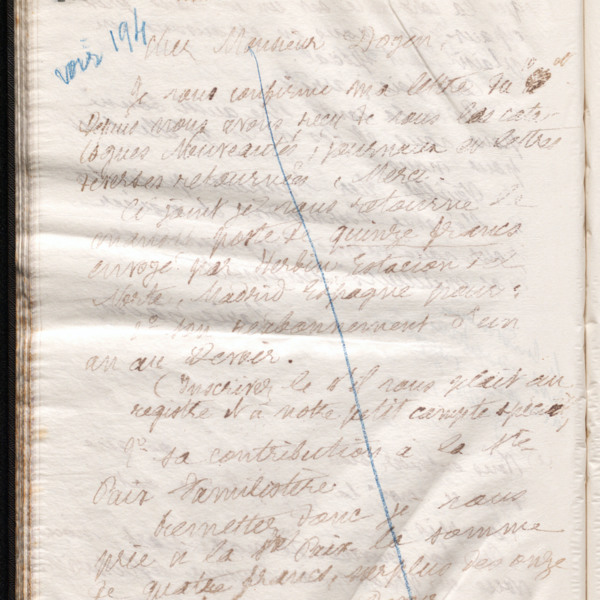 voir 194
cher Monsieur Doyen,
Je vous confirme ma lettre du
Depuis nous avons reçu de vous les cata-
logues Nouveautés, journaux et lettres
diverses retournées, Merci.
Ci joint je vous retourne le
mandat poste de quinze francs
envoyé par Estacion
Norte, Madrid Espagne pour:
1° son réabonnement d'un
an au Devoir.
(Inscrivez le s'il vous plait au
registre et à votre petit compte spécial)
2° sa contribution à la Sté
Paix Familistère.
Remettez donc je vous
prie à la Sté Paix la somme
de quatre francs, surplus des onze